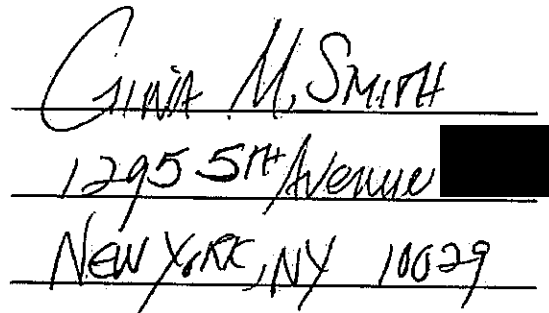 Gina M. Smith
1295 5th Avenue
New York, NY 10029